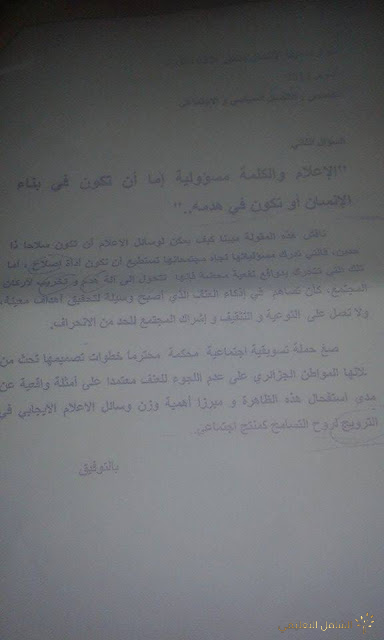 السؤال الثاني
"الإعلام والكلمة مسؤولية إما أن تكون في بناء
الإنسان أو تكون في هدمه.."
ناقش هذه المقولة مبينا كيف يمكن لوسائل الاعلام أن تكون سلاحا ذا
حدين، فالتي تدرك مسؤولياتها تجاه مجتمعاتها تستطيع أن تكون أداة إصلاح، أما
تلك التي تتحرك بدوافع نفعية محضة فإنها تتحول إلى آلة هدم و تخريب لأركان
المجتمع، كأن تساهم في إذكاء العنف الذي أصبح وسيلة لتحقيق أهداف معينة،
ولا تعمل على التوعية و التثقيف و إشراك المجتمع للحد من الانحراف.
صغ حملة تسويقية اجتماعية محكمة محترما خطوات تصميمها تحث من
خلالها المواطن الجزائري على عدم اللجوء للعنف معتمدا على أمثلة واقعية عن
مدى استفحال هذه الظاهرة و مبرزا أهمية وزن وسائل الاعلام الايجابي في
الترويج لروح التسامح كمنتج اجتماعي.
بالتوفيق